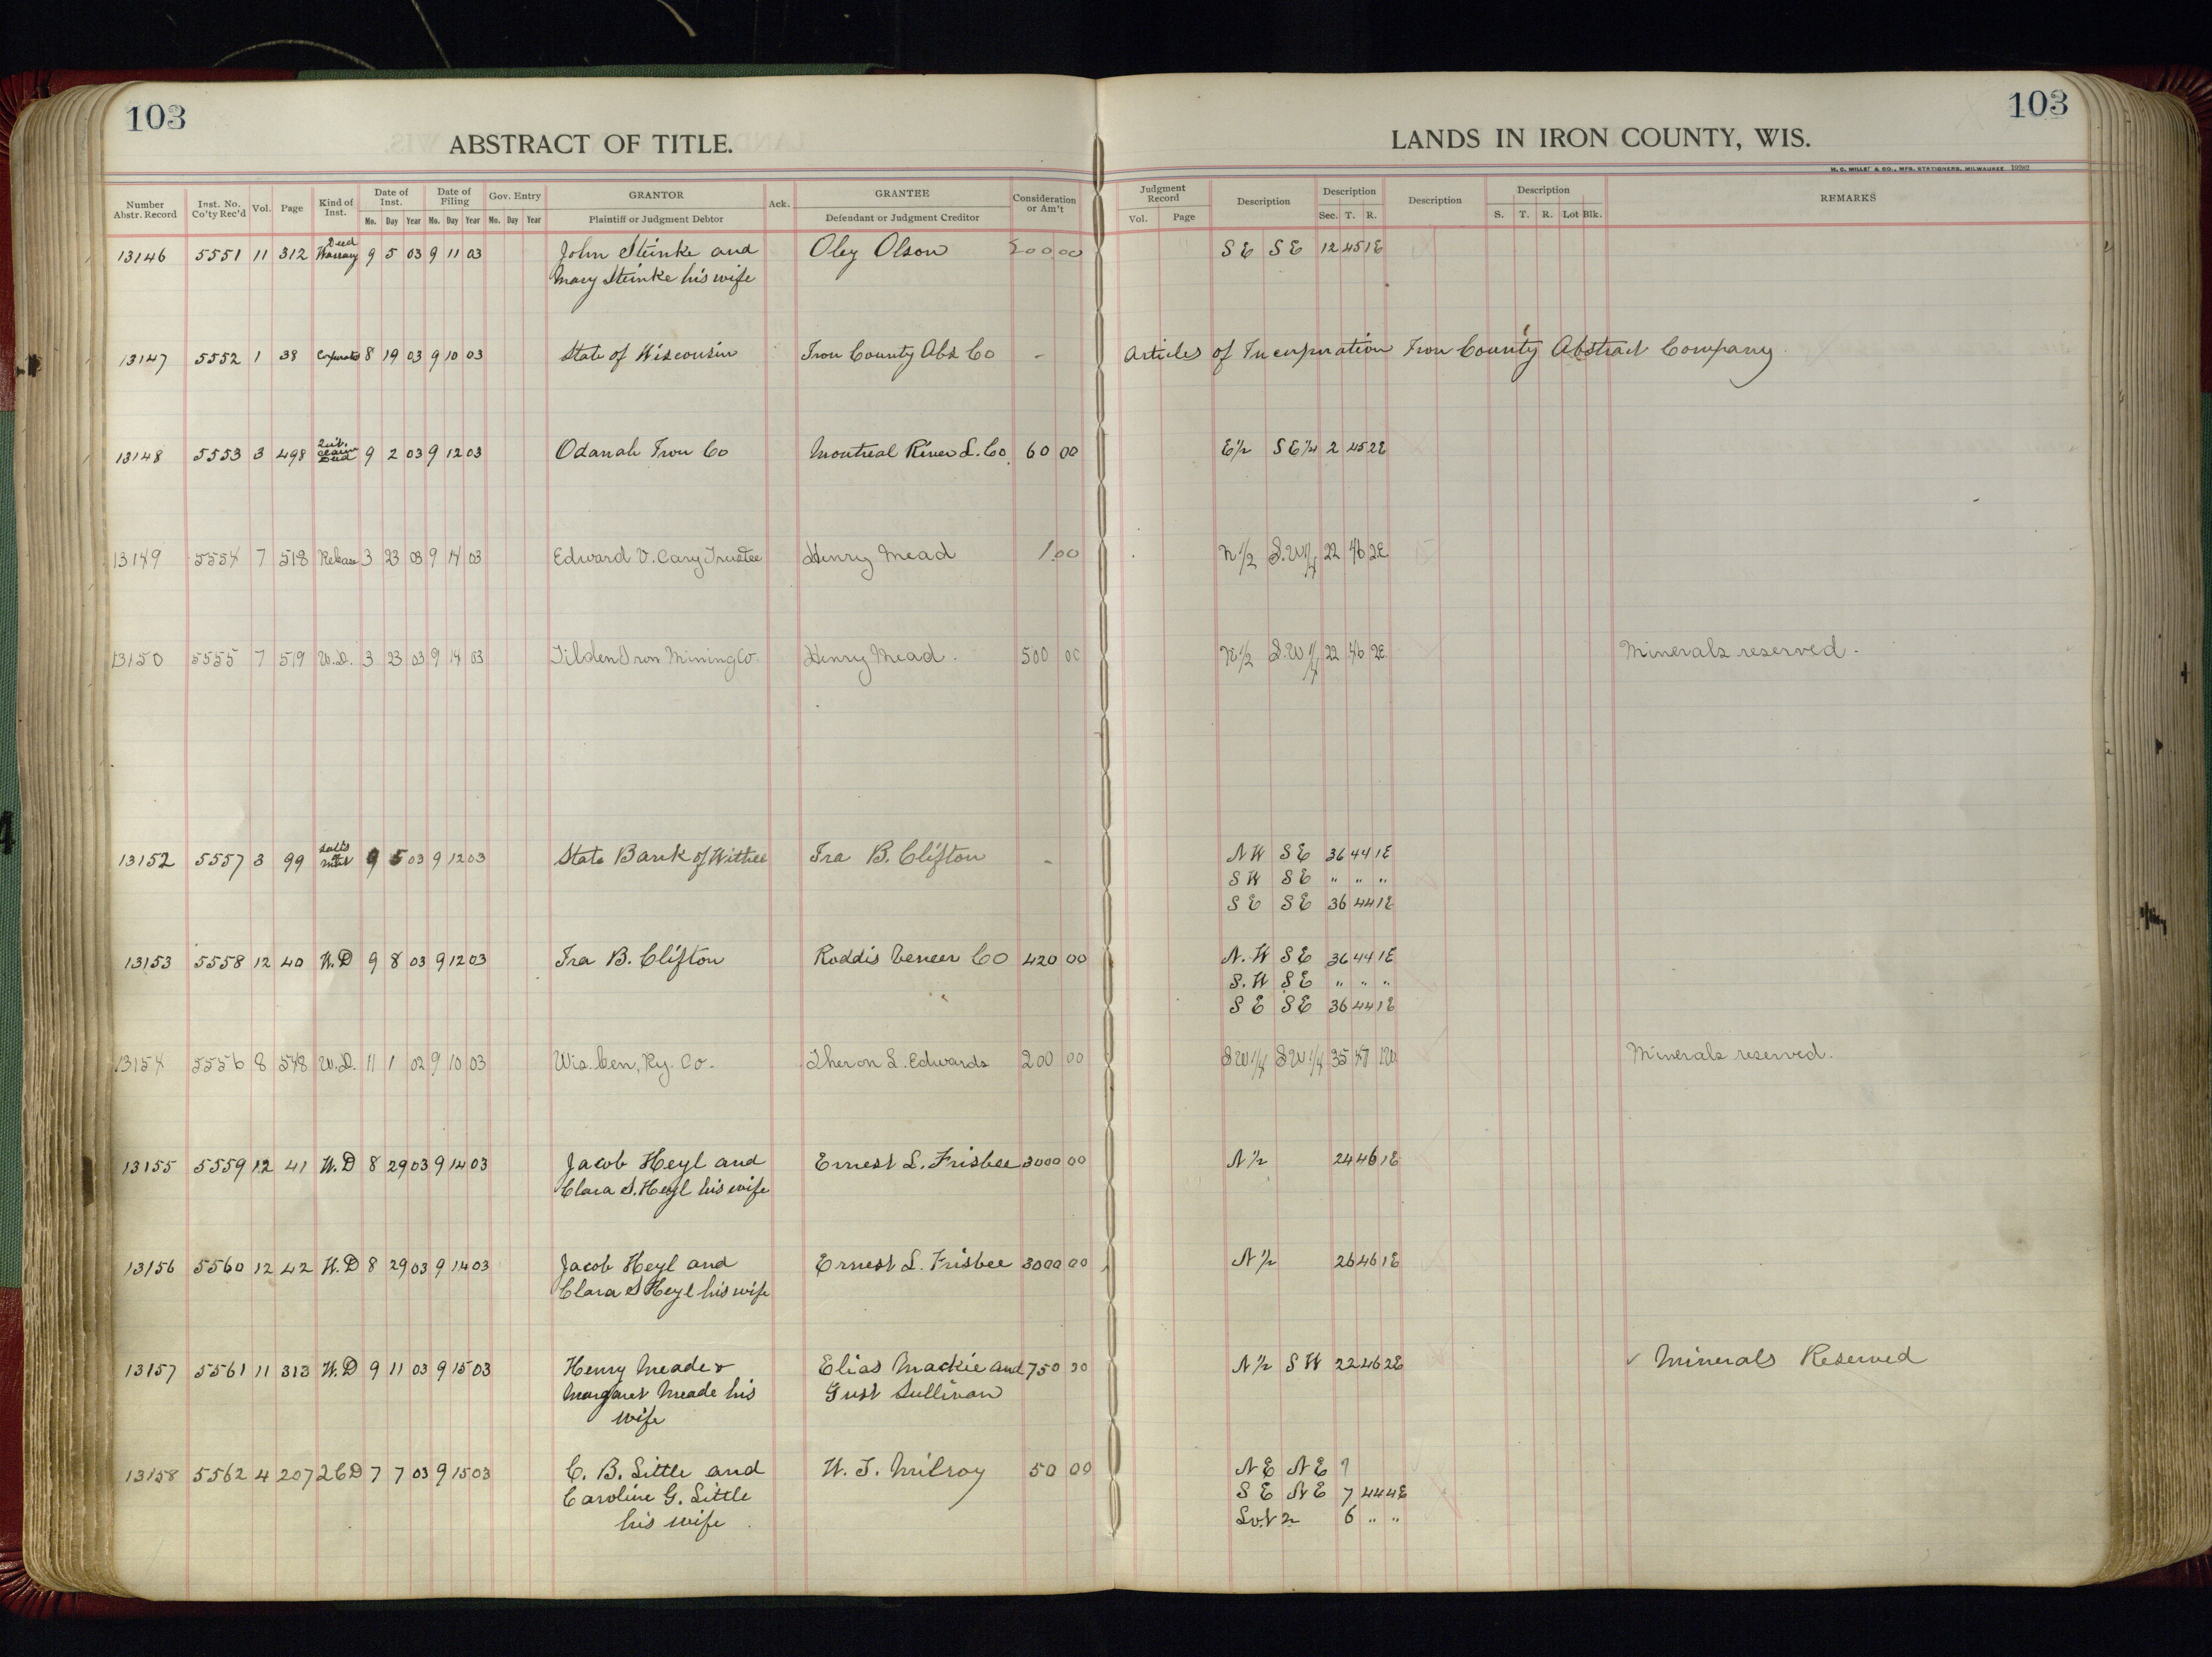 103
103
ABSTRACT OF TITLE.
LANDS IN IRON COUNTY, WIS.
H. C. MILLER & CO., MFG. STATIONERS, MILWAUKEE
Number Abstr. Record Inst. No. Co'ty Rec'd Vol. Page Kind of Inst. Date of Inst. Mo. Day Year Date of Filing Mo. Day Year Gov. Entry Mo. Day Year GRANTOR Plaintiff or Judgment Debtor Ack. GRANTEE Defendant or Judgment Creditor Consideration or Am't Judgment Record Vol. Page Description Description Sec. T. R. Description Description S. T. R. Lot Blk. REMARKS
13146 5551 11 312 Warranty Deed 9 5 03 9 11 03 John Steinke and Oley Olson 00 00 S E S E 12 45 1E
Mary Steinke his wife
13147 5552 1 38 8 19 03 9 10 03 State of Wisconsin Iron County Abs Co - Articles of Incorporation Iron County Abstract Company
13148 5553 3 498 Quit claim Deed 9 2 03 9 12 03 Odanah Iron Co Montreal River L. Co. 60 00 E 1/2 S E 1/4 2 45 2E
13149 5554 7 518 Release 3 23 03 9 14 03 Edward V. Cary Trustee Henry Mead 1.00 N 1/2 S.W 1/4 22 46 2E
13150 5555 7 519 W.D. 3 23 03 9 14 03 Tilden Iron Mining Co. Henry Mead. 500 00 N 1/2 S.W 1/4 22 46 2E Minerals reserved.
13152 5557 3 99 9 5 03 9 12 03 State Bank of Withee Ira B. Clifton - N W S E 36 44 1E
S W S E " " "
S E S E 36 44 1E
13153 5558 12 40 W.D 9 8 03 9 12 03 Ira B. Clifton Roddis Veneer Co 420 00 N.W S E 36 44 1E
S.W S E " " "
S E S E 36 44 1E
13154 5556 8 548 W.D. 11 1 02 9 10 03 Wis. Cen, Ry. Co. Theron L. Edwards 200 00 SW 1/4 SW 1/4 35 47 1W Minerals reserved.
13155 5559 12 41 W.D 8 29 03 9 14 03 Jacob Heyl and Ernest L. Frisbee 3000 00 N 1/2 24 46 1E
Clara S. Heyl his wife
13156 5560 12 42 W.D 8 29 03 9 14 03 Jacob Heyl and Ernest L. Frisbee 3000 00 N 1/2 26 46 1E
Clara S Heyl his wife
13157 5561 11 313 W.D 9 11 03 9 15 03 Henry Meade & Elias Mackie and 750 00 N 1/2 S W 22 46 2E ✓ Minerals Reserved
Margaret Meade his Gust Sullivan
wife
13158 5562 4 207 2CD 7 7 03 9 15 03 C. B. Little and W. J. Milroy 50 00 N E N E 7
Caroline G. Little S E N E 7 44 4E
his wife Lot 2 6 " "